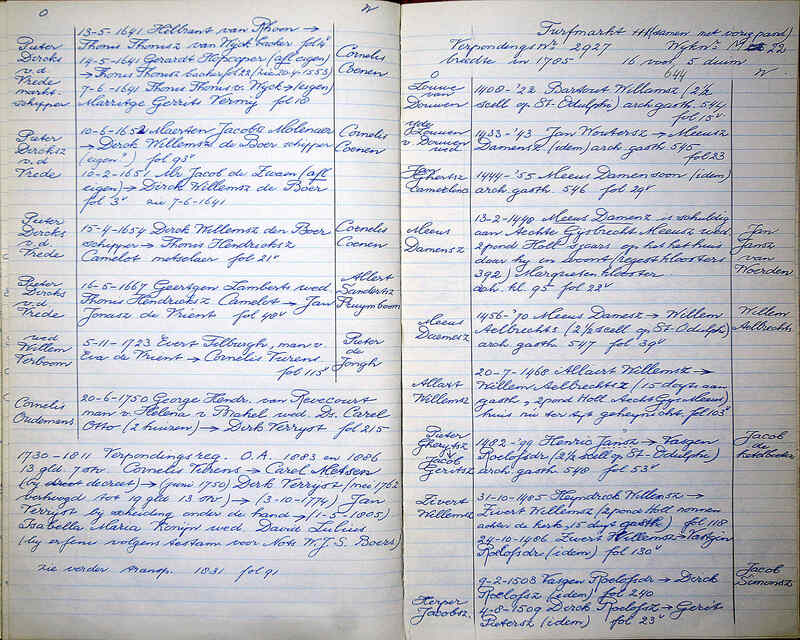 O
W
13-5-1641 Helbrant van Rhoon →
Thonis Thonisz van Wyck backer fol 4v
14-5-1641 Gerardt Hopcoper (afl eigen)
→ Thonis Thonisz backer fol 22 (zie 20-4-1553)
7-6-1641 Thonis Thonis v. Wyck → (eigen)
Marritge Gerrits Vermy fol 10
Pieter
Dircks
v.d.
Vrede
markt-
schipper
Cornelis
Coenen
10-6-1652 Maerten Jacobsz Molenaer
→ Dirck Willemsz de Boer schipper
(eigen") fol 93v
10-2-1651 Mr Jacob de Zwaen (afl
eigen) → Dirck Willemsz de Boer
fol 3v zie 7-6-1641
Pieter
Dircksz
v.d.
Vrede
Cornelis
Coenen
15-4-1654 Dirck Willemsz den Boer
schipper → Thonis Hendricksz
Camelot metselaer fol 21v
Pieter
Dircks
v.d.
Vrede
Cornelis
Coenen
16-5-1667 Geertgen Lamberts wed
Thonis Hendricksz Camelot → Jan
Jansz de Vrient fol 40v
Pieter
Dircks
v.d.
Vrede
Allert
Sandertsz
Pruymboom
5-11-1723 Evert Tilburgh, man v.
Eva de Vrient → Cornelis Turens
fol 115v
wed
Willem
Verboom
Pieter
de
Jongh
20-6-1750 George Hendr. van Revecourt
man v Helena v Brakel wed. Ds. Carel
Otto (2 huizen) → Dirk Verryst fol 215
Cornelis
Oudemans
1730-1811 Verpondingsreg. O.A. 1083 en 1086
13 gld 7 str. Cornelis Turens → Carel Metsen
(by decreet) → (juni 1750) Dirk Verryst (mei 1762
verhoogd tot 19 gld 13 str) → (3-10-1774) Jan
Verryst by scheiding onder de hand → (1-5-1805)
Isabella Maria Konijn wed. David Lulius
(by erfenis volgens testam voor Nots W.J.S. Boers)
zie verder transp. 1831 fol 91
Turfmarkt H4 (samen met vorig pand)
Verpondings No 2927 Wyk no M 22
breedte in 1785 16 voet 5 duim
O 644 W.
Louwe
van
Douwen
1408-'22 Bartout Willamsz (2½
scell op St-Odulph) arch gasth 544
fol 15v
Louwen
v. Douwen
wed
1433-'43 Jan Woutersz → Meeusz
Damensz (idem) arch gasth 545
fol 23
1444-'55 Meeus Damensoon (idem)
arch. gasth. 546 fol 29v
13-2-1440 Meeus Damenz is schuldig
aan Aechte Gysbrecht Meeusz wed
2 pond Holl 's jaers op het het huis
daer hy in woont (regest kloosters
392) Margrieten klooster
arch. kl. 95 fol 22v
Meeus
Damensz
Jan
Jansz
van
Woerden
1456-'70 Meeus Damesz → Willem
Aelbrechts (2½ scell op St-Odulph)
arch. gasth 547 fol 39v
Meeus
Damesz
Willem
Aelbrechts
20-7-1468 Allaert Willemsz →
Willem Aelbrechtsz (15 deyts aan
gasth, 2 pond Holl Aecht Gys Meeus)
huis nu ter tyt geheyn icht. fol 103v
Allart
Willemsz
1482-'99 Henric Jansz → Vastgen
Roelofsdr (2½ scell op St-Odulph)
arch. gasth 548 fol 53v
Pieter
Gherytsz
Jacob
Geritsz
Jacob
de
ketelboeter
31-10-1485 Heyndrick Willemsz →
Evert Willemsz (2 pond Holl nonnen
achter de kerk, 15 deyts gasth) fol 118
24-10-1486 Evert Willemsz → Vastgin
Roelofsdr (idem) fol 130v
Evert
Willemsz
9-2-1508 Vastgen Roelofsdr → Dirck
Roelofsz (idem) fol 240
4-8-1509 Dirck Roelofsz → Gerit
Pietersz (idem) fol 23v
Herper
Jacobsz.
Jacob
Simonsz